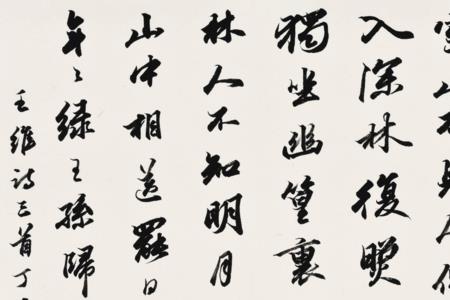 空山不見人但
入深林復照
獨坐幽篁裏
林人不知明月
山中相送罷日
年々綠王孫歸
王維詩三首丁